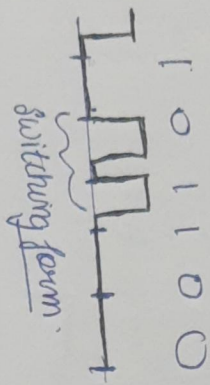 1 0 1 1 0 0
switching form.